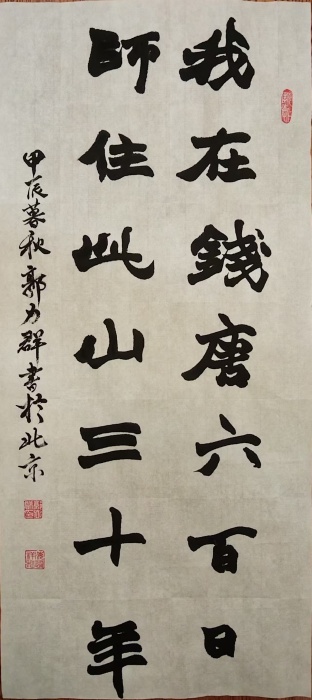 我在錢唐六百日
師住此山三十年
甲辰暮秋郭力群書於北京